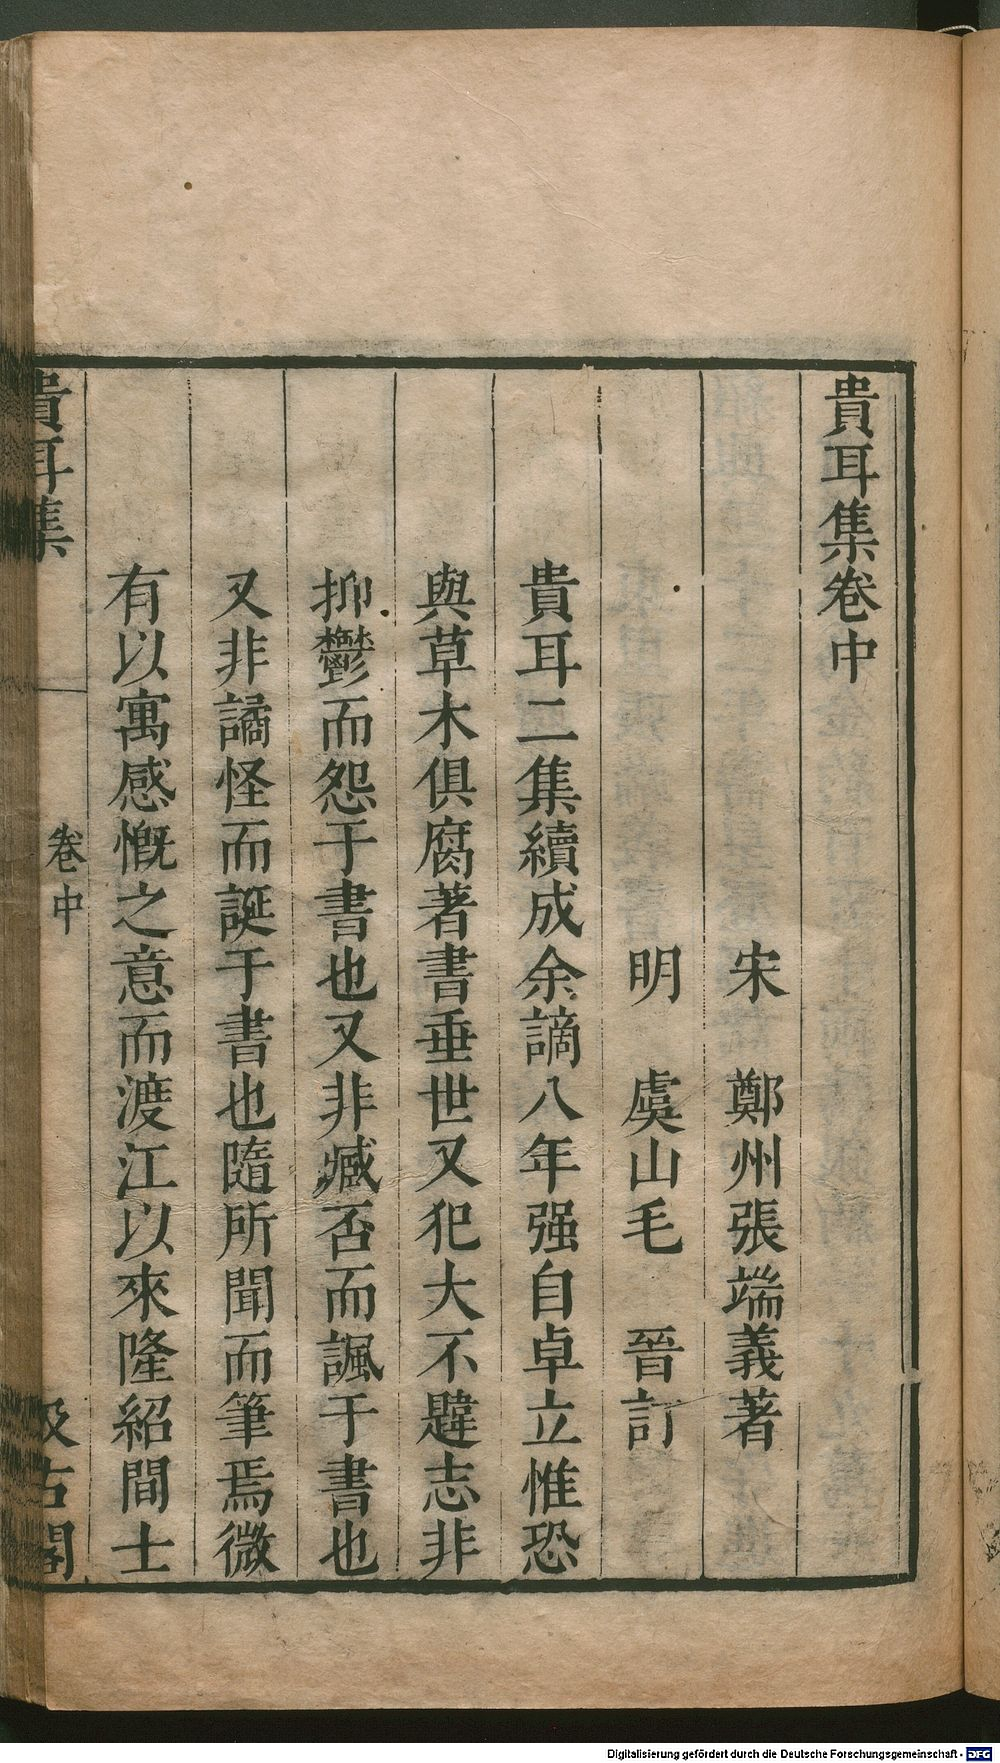 貴耳集卷中
宋　鄭州張端義著
明　虞山毛　晉訂
貴耳二集續成余謫八年强自卓立惟恐
與草木俱腐著書垂世又犯大不韙志非
抑鬱而怨于書也又非臧否而諷于書也
又非譎怪而誕于書也隨所聞而筆焉微
有以寓感慨之意而渡江以來隆紹間士
貴耳集　卷中　汲古閣
Digitalisierung gefördert durch die Deutsche Forschungsgemeinschaft - DFG